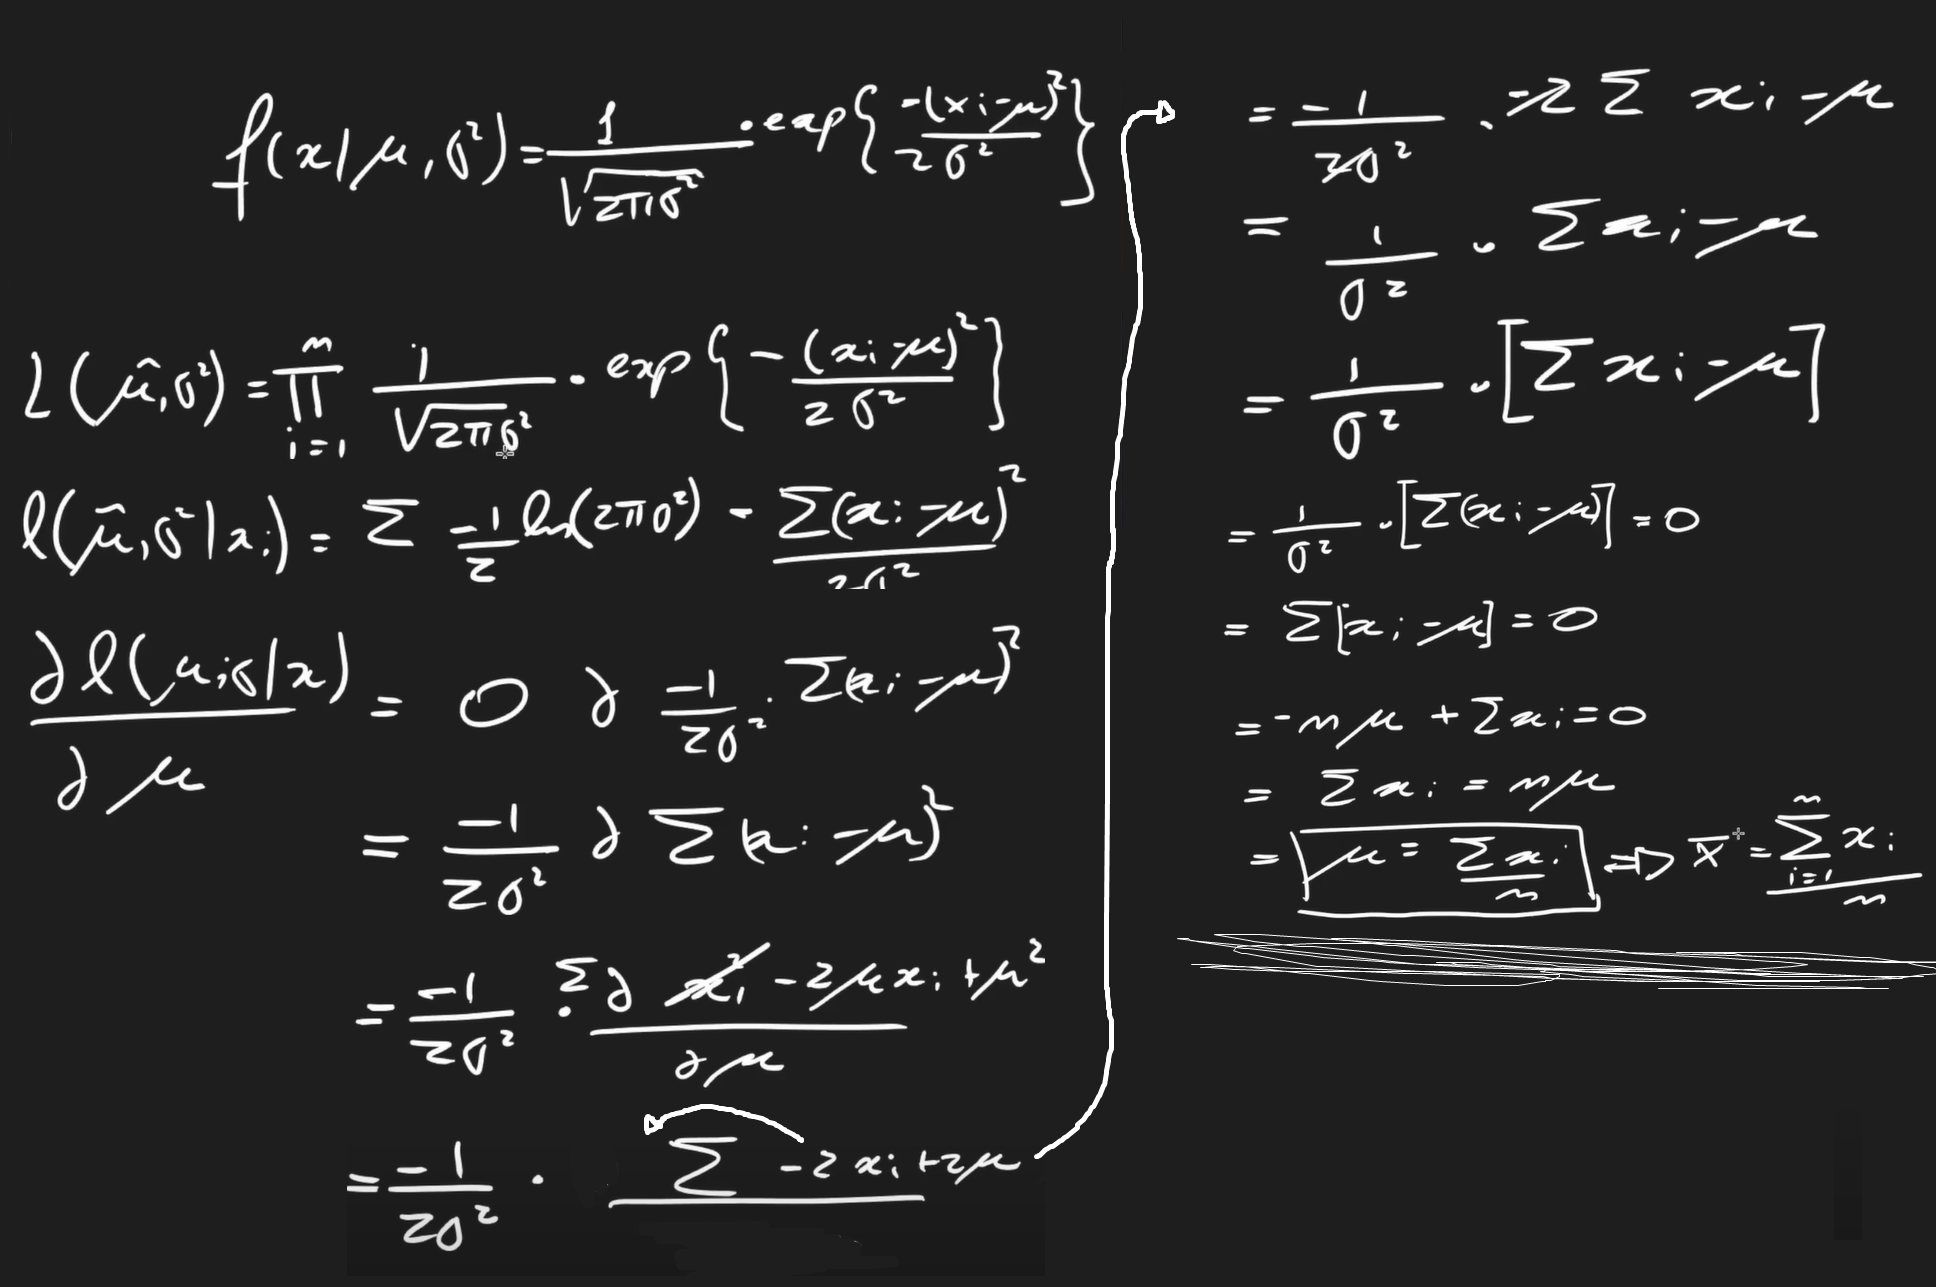 f(x|μ,σ²) = 1/√(2πσ²) · exp{-(xi-μ)²/2σ²}
L(μ̂,σ²) = ∏_{i=1}^{n} 1/√(2π)σ² · exp{-(xi-μ)²/2σ²}
l(μ̂,σ²|xi) = Σ -1/2 ln(2πσ²) - Σ(xi-μ)²/2σ²
∂l(μ;σ|x)/∂μ = 0 ∂ -1/2σ² · Σ(xi-μ)²
= -1/2σ² ∂ Σ(xi-μ)²
= -1/2σ² · Σ ∂ xi² -2μxi+μ² / ∂μ
= -1/2σ² · Σ -2xi+2μ
= -1/2σ² · -2 Σ xi-μ
= 1/σ² · Σ xi-μ
= 1/σ² · [Σ xi-μ]
= 1/σ² · [Σ(xi-μ)] = 0
= Σ[xi-μ] = 0
= -nμ + Σxi = 0
= Σxi = nμ
= μ = Σxi/n ⇒ x̄ = Σ_{i=1}^{n} xi / n